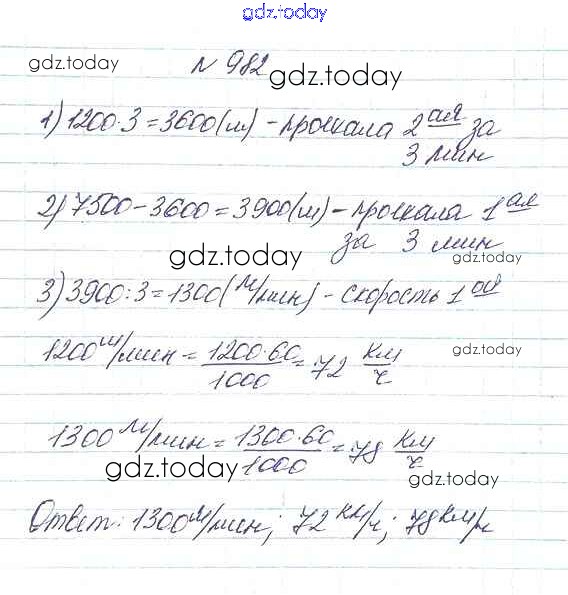 gdz.today
gdz.today
№ 982
gdz.today
1) 1200·3=3600(м) - проехала 2ая за
3 мин
2) 7500-3600=3900(м) - проехала 1ая
за 3 мин
gdz.today
gdz.today
3) 3900:3=1300(м/мин) - скорость 1ой
1200 м/мин = 1200·60/1000 = 72 км/ч
gdz.today
1300 м/мин = 1300·60/1000 = 78 км/ч
gdz.today
gdz.today
Ответ: 1300 м/мин; 72 км/ч; 78 км/ч